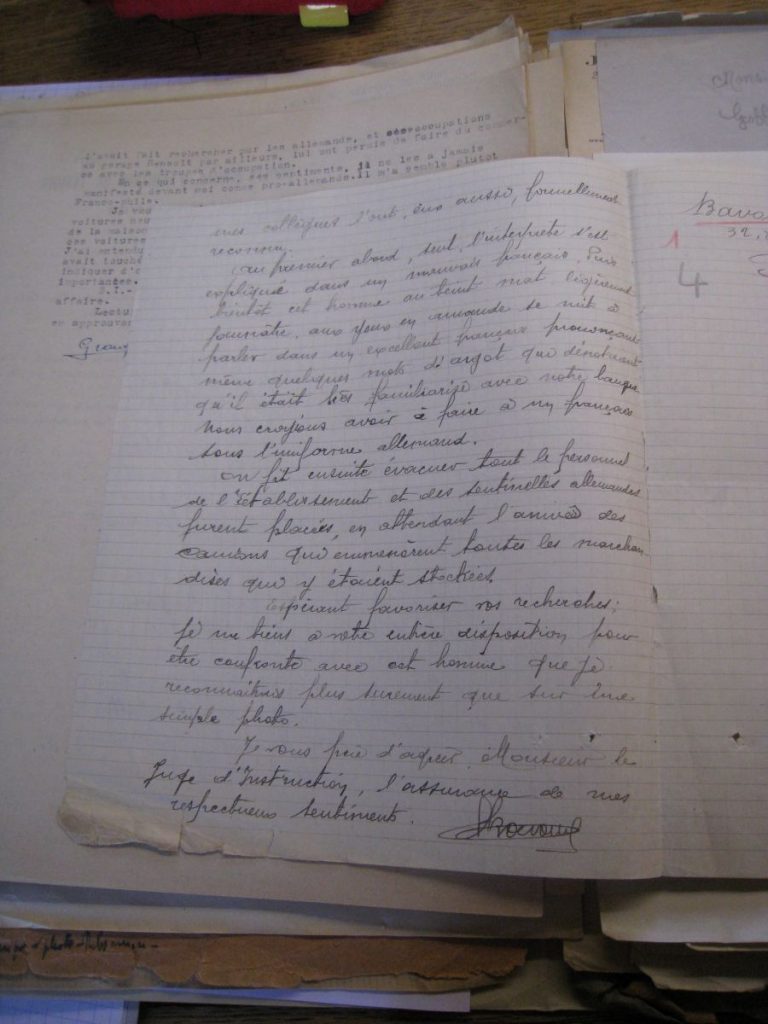 d'avait fait rechercher par les allemands, et ses occupations
au garage Renault par ailleurs, lui ont permis de faire du commer-
ce avec les troupes d'occupation.
En ce qui concerne, ses sentiments, il ne les a jamais
manifesté devant moi comme pro-allemands. il m'a semblé plutôt
Franco-phile.
Je vou
voitures neu
de la maison
ces voitures
J'ai entendu
avait touché
indiquer d'o
importantes.
S.I.-
affaire.
Lectu
en approuve
mes collègues l'ont, eux aussi, formellement
reconnu.
Au premier abord, seul, l'interprète s'est
expliqué dans un mauvais français. Puis
bientôt cet homme au teint mat légèrement
jaunâtre, aux yeux en amande se mit à
parler dans un excellent français prononçant
même quelques mots d'argot qui dénotaient
qu'il était très familiarisé avec notre langue
Nous croyions avoir à faire à un français
sous l'uniforme allemand.
On fit ensuite évacuer tout le personnel
de l'établissement et des sentinelles allemandes
furent placées, en attendant l'arrivée des
camions qui emmenèrent toutes les marchan
dises qui y étaient stockées.
Espérant favoriser vos recherches;
je me tiens à votre entière disposition pour
être confronté avec cet homme que je
reconnaîtrais plus surement que sur une
simple photo.
Je vous prie d'agréer, Monsieur le
Juge d'Instruction, l'assurance de mes
respectueux sentiments.
Bava
32,
1
4
Monsi